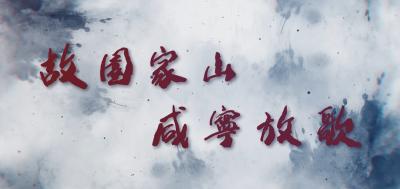 故园家山
咸寧放歌